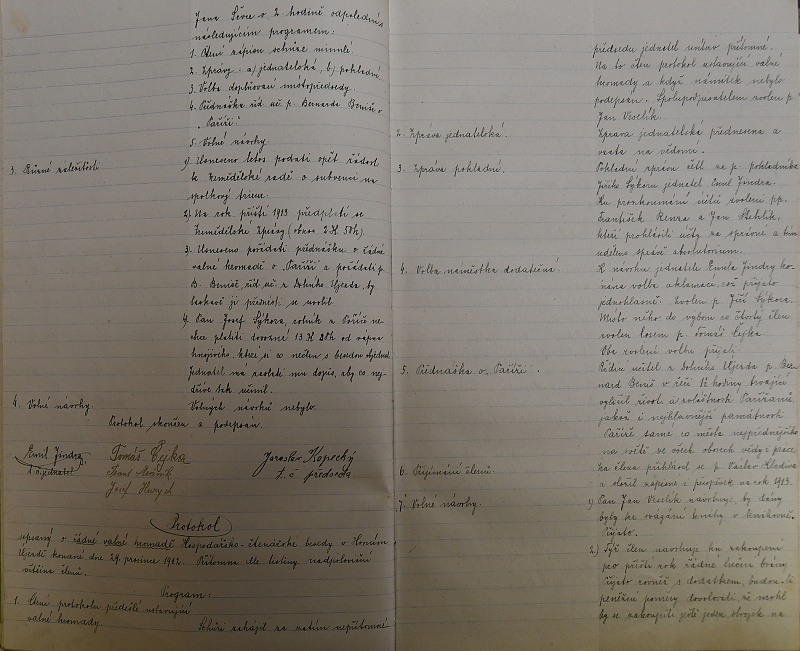 Jana Ševce o 2. hodině odpolední s
následujícím programem:
1. Čtení zápisu schůze minulé
2. Zprávy: a) jednatelská, b) pokladní
3. Volba doplňovací místopředsedy.
4. Přednáška říd. uč. p. Bernarda Beniše o
„Paříži".
5. Volné návrhy.
3. Různé záležitosti
1) Usneseno letos podati opět žádost
k zemědělské radě o subvenci na
spolkový trieur.
2) Na rok příští 1913 předplatí se
Zemědělské Zprávy (obnos 2 K 50 h).
3. Usneseno pořádati přednášku o řádné
valné hromadě o „Paříži a požádati p.
B. Beniše říd. uč. z Dolního Újezda, by
laskavě ji přednésti se uvolil.
4) Pan Josef Sýkora, rolník z Poříče ne-
chce platiti dovozné 13 K 20 h od vápna
hnojivého, které si co nečlen s besedou objednal.
Jednatel má zaslati mu dopis, aby co nej-
dříve tak učinil.
4. Volné návrhy.
Volných návrhů nebylo.
Protokol skončen a podepsán.
Emil Jindra,
t. č. jednatel
Tomáš Lejka
Josef
Jaroslav Kopecký
t. č. předseda
Protokol
sepsaný o řádné valné hromadě Hospodářsko-čtenářské besedy v Horním
Újezdě konané dne 29. prosince 1912. Přítomna dle listiny nadpoloviční
většina členů.
Program:
1. Čtení protokolu předešlé ustavující
valné hromady.
Schůzi zahájil za zatím nepřítomného
předsedu jednatel uvítav přítomné.
Na to čten protokol ustavující valné
hromady a když námitek nebylo
podepsán. Spolupodpisatelem zvolen p.
Jan Veselík.
2. Zpráva jednatelská.
Zpráva jednatelská přednesena a
vzata na vědomí.
3. Zpráva pokladní.
Pokladní zprávu četl za p. pokladníka
Jiřího Sýkoru jednatel Emil Jindra.
Ku prozkoumání účtů zvoleni pp.
František Renza a Jan Stehlík,
kteří prohlásili účty za správné a tím
uděleno správě absolutorium.
4. Volba náměstka dodatečná.
K návrhu jednatele Emila Jindry ko-
nána volba aklamací, což přijato
jednohlasně. Zvolen p. Jiří Sýkora.
Místo něho do výboru co čtvrtý člen
zvolen losem p. Tomáš Lejka
Oba zvolení volbu přijali.
5. Přednáška o „Paříži".
Řídící učitel z Dolního Újezda p. Ber-
nard Beniš v řeči 1½ hodiny trvající
vylíčil život a zvláštnosti Pařížanů
jakož i nejhlavnější památnosti
Paříže samé, co města nejpřednějšího
na světě ve všech oborech vědy i práce.
6. Přijímání členů.
Za člena přihlásil se p. Václav Kladiva
a složil zápisné i příspěvek na rok 1913.
7. Volné návrhy.
1) Pan Jan Veselík navrhuje, by dány
byly ke svázání knihy v knihovně.
Přijato.
2.) Týž člen navrhuje ku zakoupení
pro příští rok řádné luční brány
Přijato rovněž s dodatkem, budou-li
peněžní poměry dovolovati, že mohl
by se zakoupiti ještě jeden strojek na